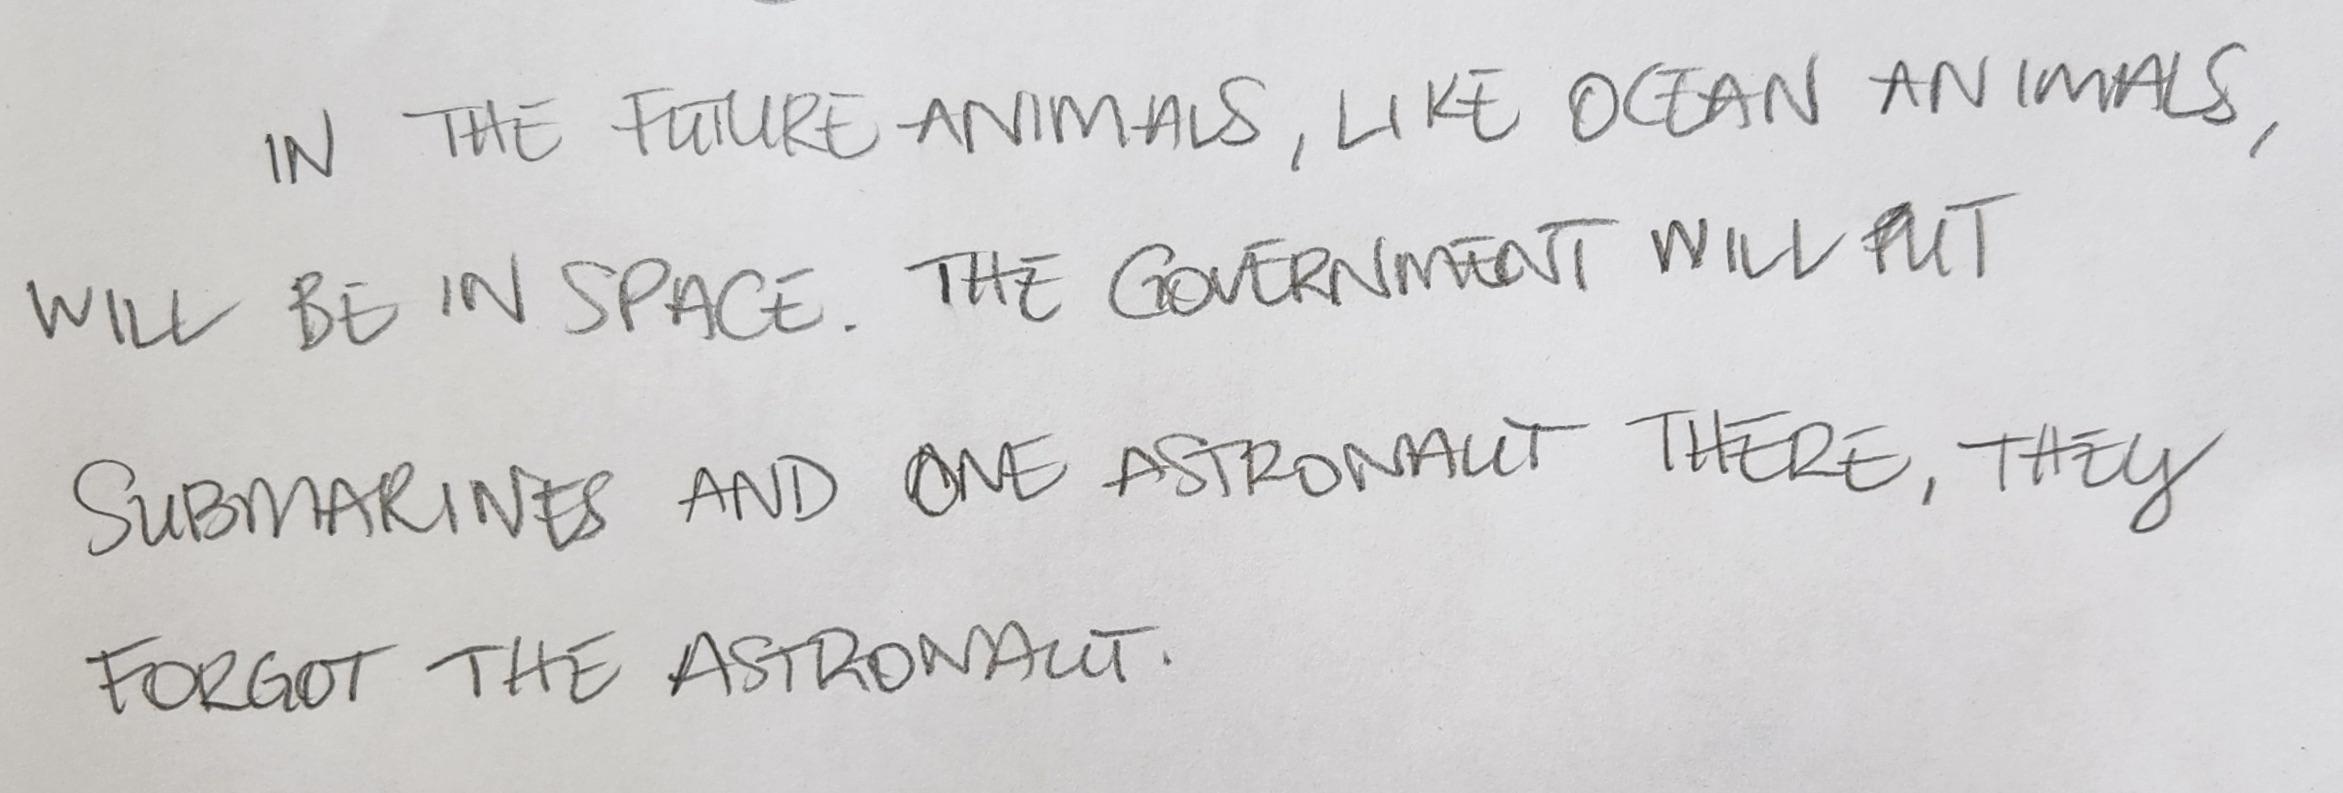 IN THE FUTURE ANIMALS, LIKE OCEAN ANIMALS,
WILL BE IN SPACE. THE GOVERNMENT WILL PUT
SUBMARINES AND ONE ASTRONAUT THERE, THEY
FORGOT THE ASTRONAUT.